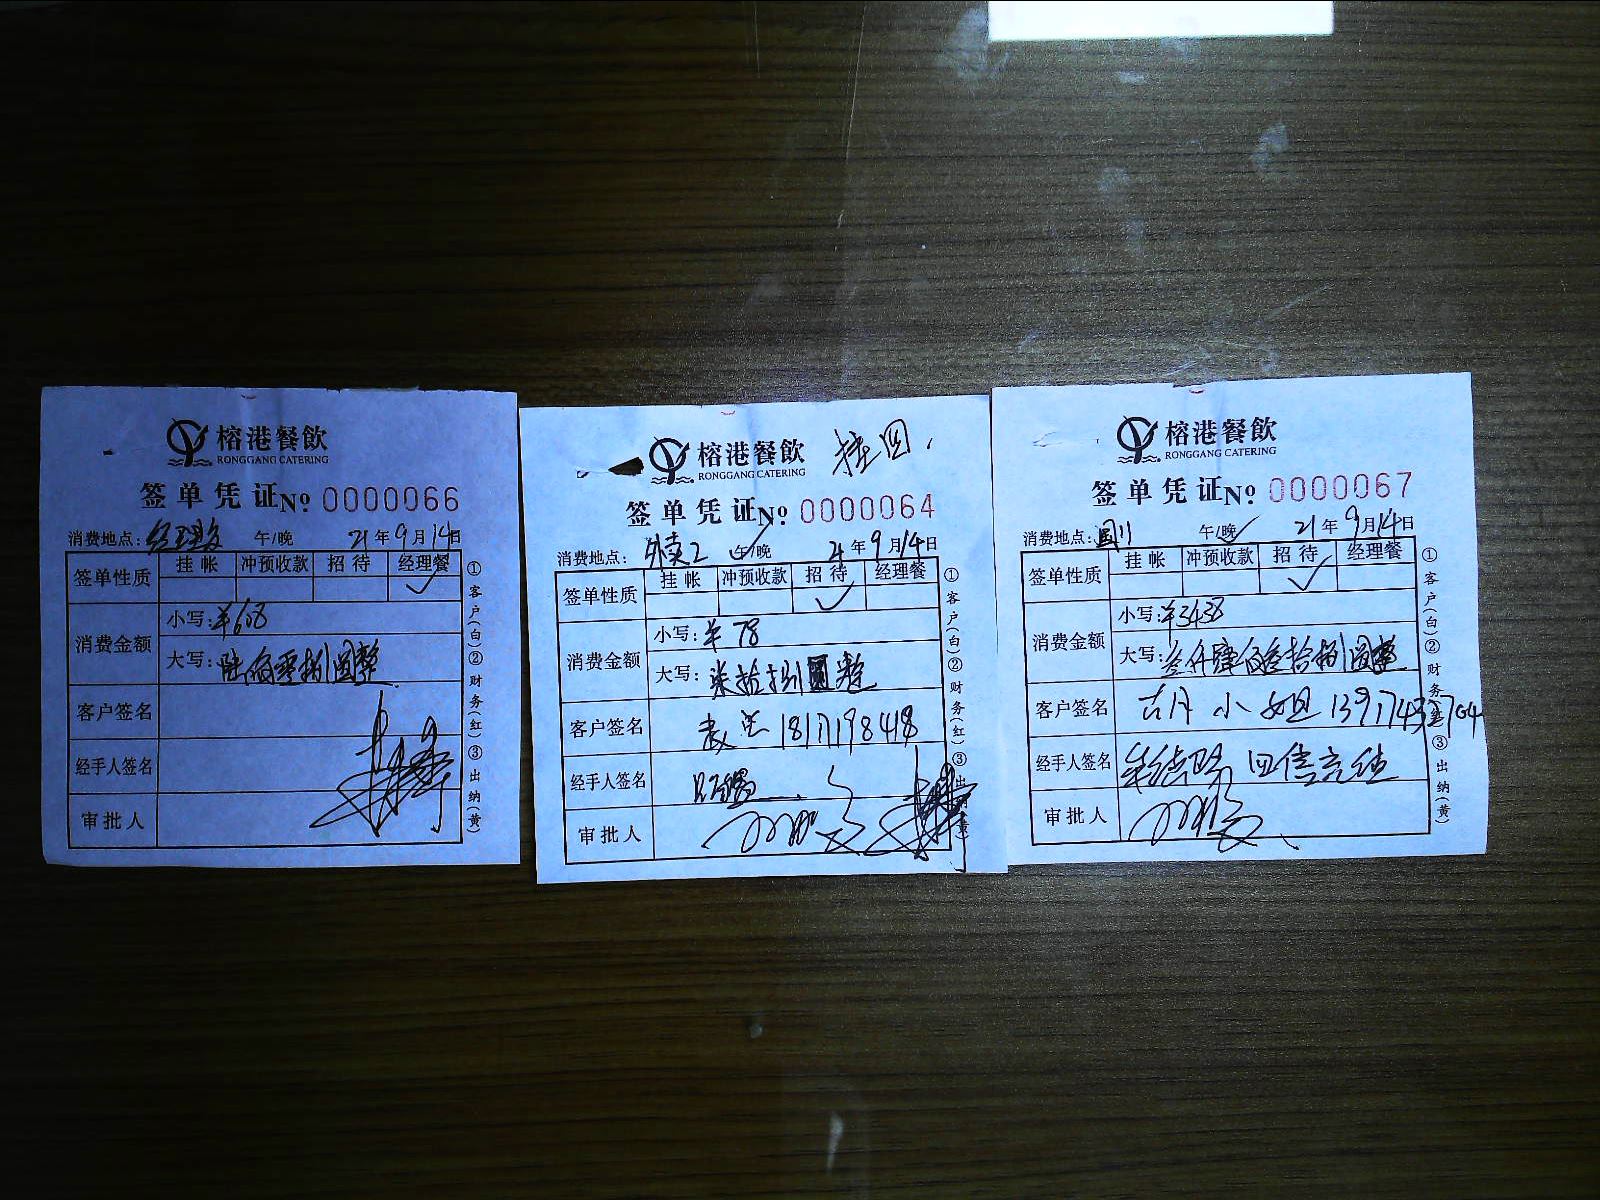 榕港餐飲
RONGGANG CATERING
签单凭证 No 0000066
消费地点: 午/晚 21年9月14日
签单性质 挂帐 冲预收款 招待 经理餐
✓
消费金额
小写:¥608
大写:陆佰零捌圆整
客户签名
经手人签名
审批人
①客户(白)②财务(红)③出纳(黄)
榕港餐飲
RONGGANG CATERING
签单凭证 No 0000064
消费地点:外卖2 午/晚 21年9月14日
签单性质 挂帐 冲预收款 招待 经理餐
✓
消费金额
小写:¥78
大写:柒拾捌圆整
客户签名
经手人签名
审批人
①客户(白)②财务(红)③出纳(黄)
榕港餐飲
RONGGANG CATERING
签单凭证 No 0000067
消费地点: 午/晚 21年9月14日
签单性质 挂帐 冲预收款 招待 经理餐
✓
消费金额
小写:¥3438
大写:叁仟肆佰叁拾捌圆整
客户签名 古月小姐
经手人签名
审批人
①客户(白)②财务(红)③出纳(黄)